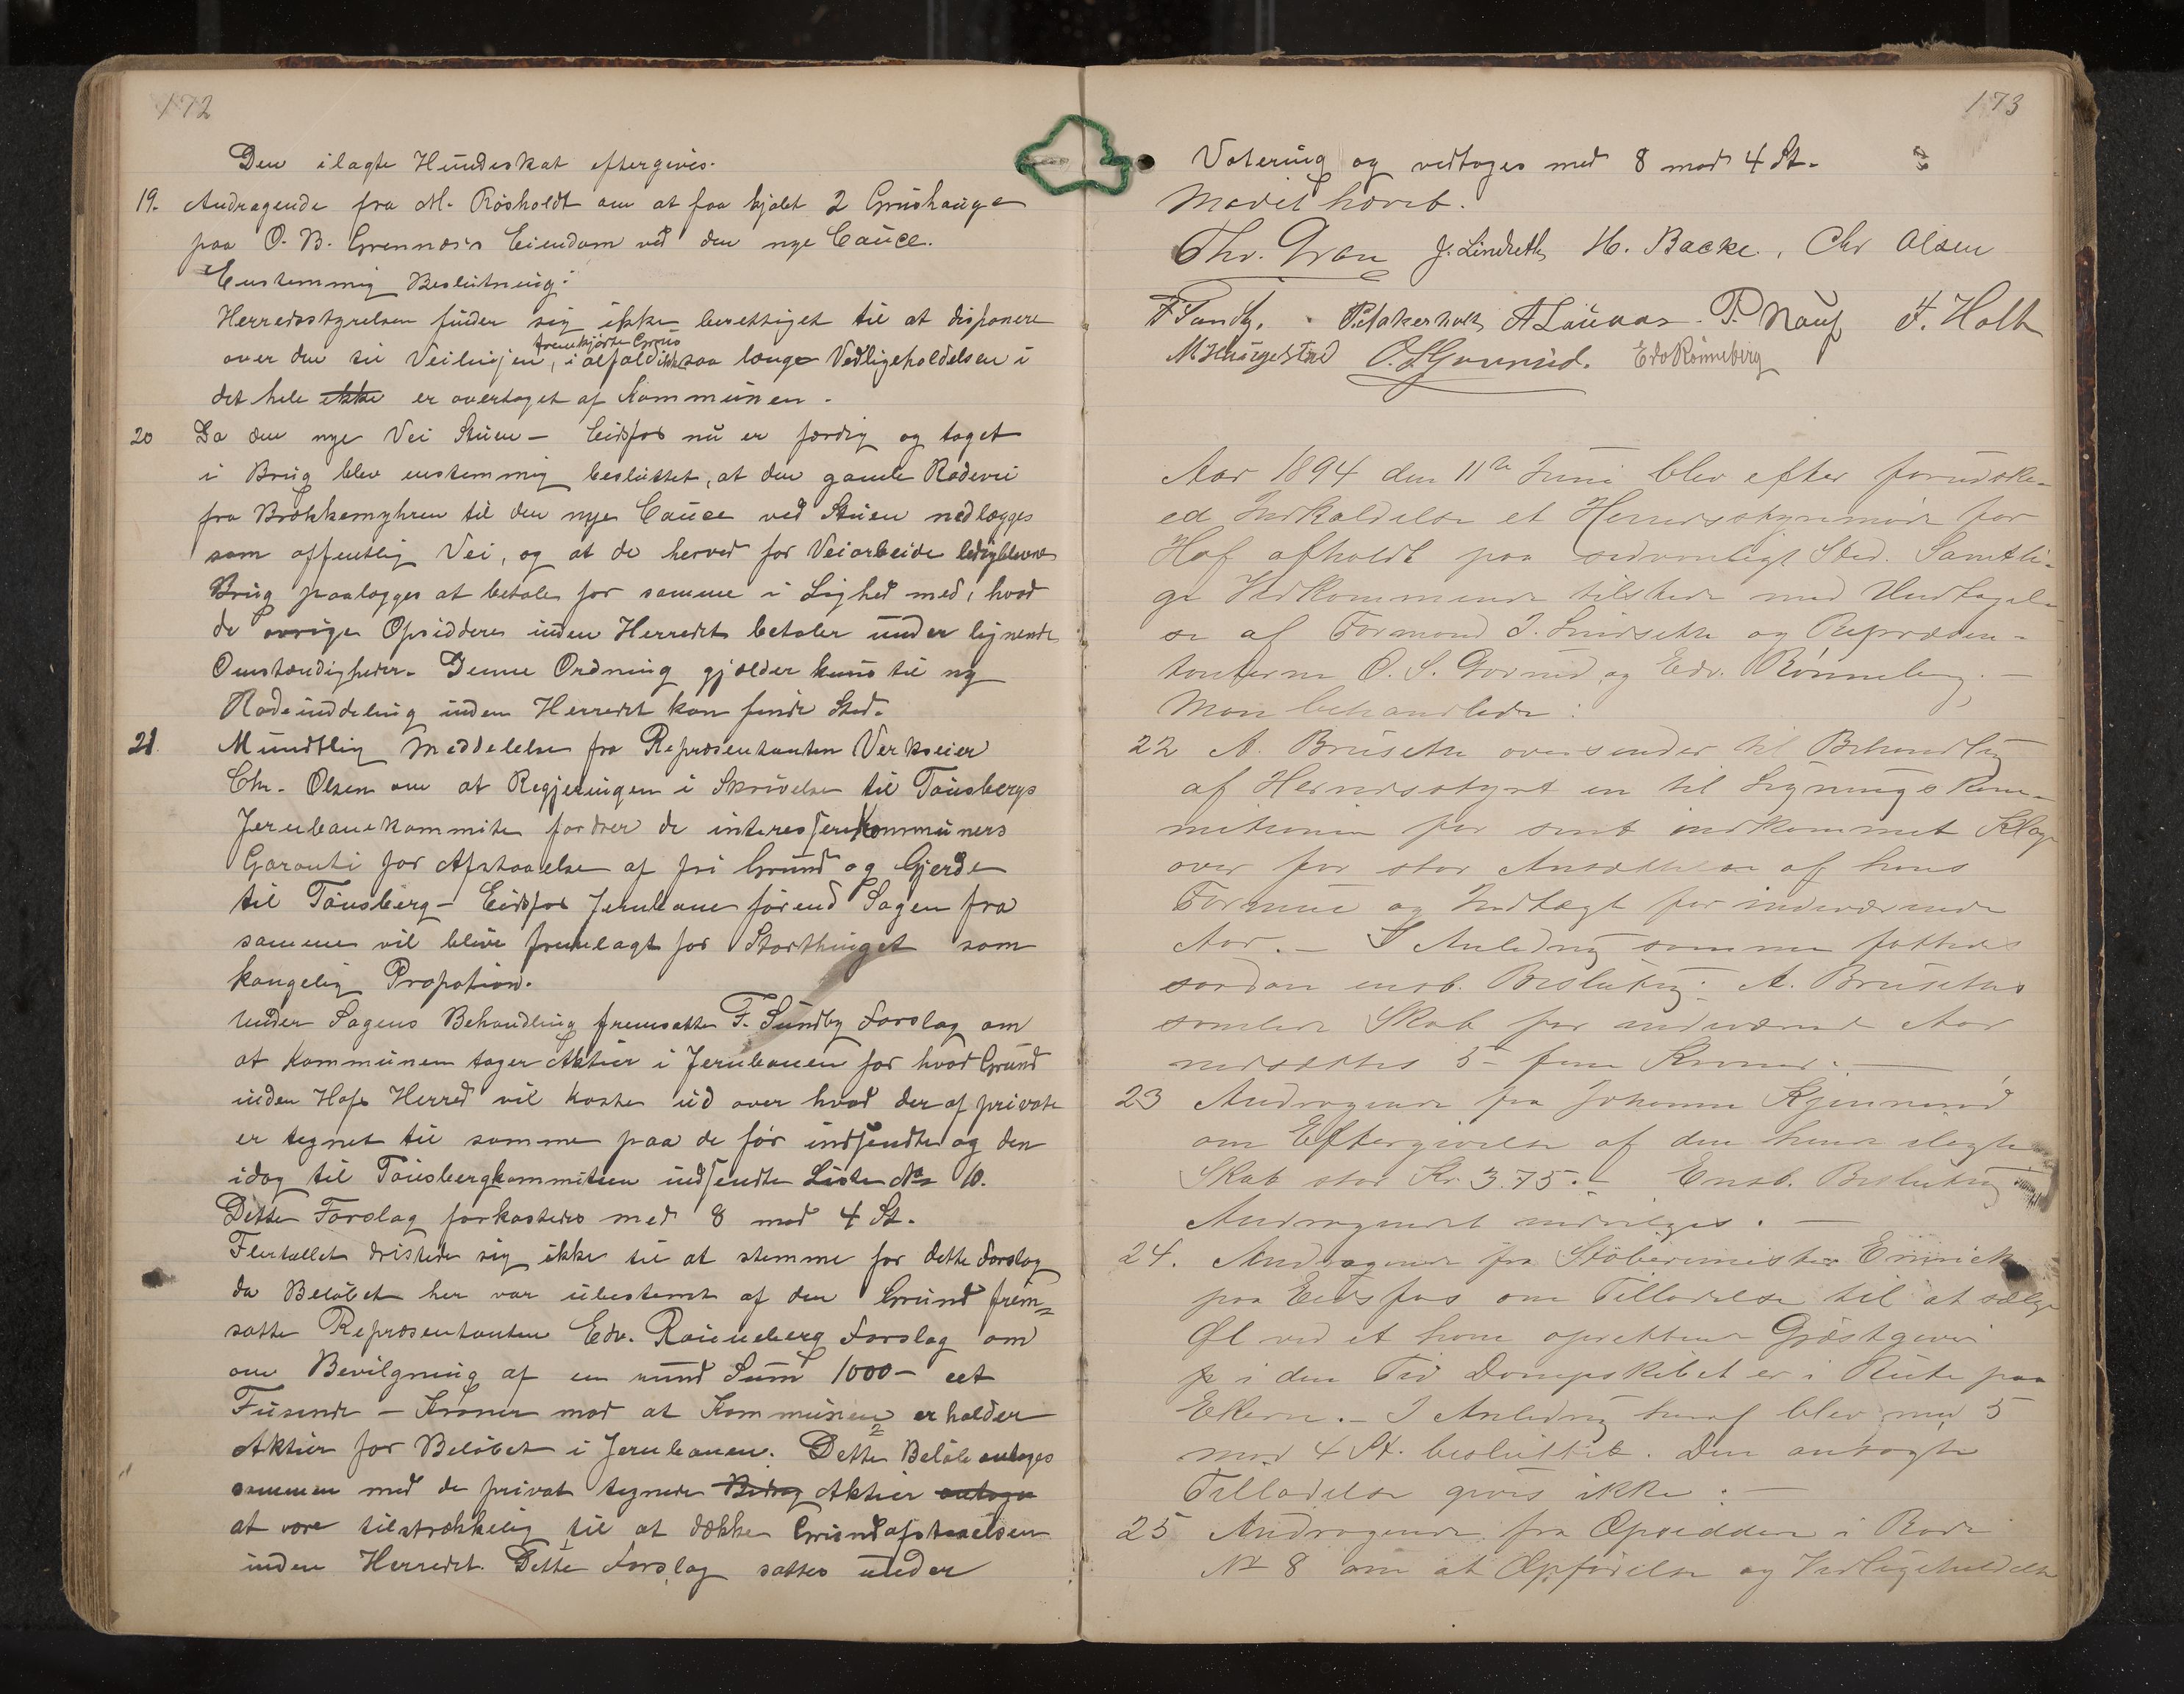 172
Den ilagte Hundeskat eftergives.
19. Andragende fra M. Rösholdt om at faa kjöbt 2 Grushauge
paa O. B. Grennæs's Eiendom ved den nye Cauce.
Enstemmig Beslutning:
Herredsstyrelsen finder sig ikke berettiget til at disponere
over den til Veilinjen fremkjörte Grus, i alfald ikke saa længe Vedligeholdelsen i
det hele ikke er overtaget af Kommunen.
20 Da den nye Vei Stuen – Eidsfos nu er færdig og taget
i Brug blev enstemmig besluttet, at den gamle Rodevei
fra Brækkemyhren til den nye Cauce ved Stuen nedlægges
som offentlig Vei, og at de herved for Veiarbeide ledigblevne
Brug paalægges at betale for samme i Lighed med, hvad
de övrige Opsiddere inden Herredet betaler under lignende
Omstændigheder. Denne Ordning gjælder kuns til ny
Rodeinddeling inden Herredet kan finde Sted.
21. Mundtlig Meddelelse fra Repræsentanten Verkseier
Chr. Olsen om at Regjeringen i Skrivelse til Tönsbergs
Jernbanekommite fordrer de interesserede Kommuners
Garanti for Afstaaelse af fri Grund og Gjerde
til Tönsberg – Eidsfos Jernbane förend Sagen fra
samme vil blive fremlagt for Storthinget som
kongelig Propotion.
Under Sagens Behandling fremsatte F. Sundby Forslag om
at Kommunen tager Aktier i Jernbanen for hvad Grund
inden Hofs Herred vil koste ud over hvad der af private
er tegnet til samme paa de för indsendte og den
idag til Tönsbergkommiteen indsendte Liste No 10.
Dette Forslag forkastedes med 8 mod 4 St.
Flertallet dristede sig ikke til at stemme for dette Forslag
da Belöbet her var ubestemt af den Grund frem=
satte Repræsentanten Edv. Rönneberg Forslag om
om Bevilgning af en rund Sum 1000 – et
Tusende – Kroner mod at Kommunen erholder
Aktier for Belöbet i Jernbanen. Dette Belöb antoges
sammen med de privat tegnede Bidrag Aktier antoges
at være tilstrækkelig til at dække Grundafstaaelsen
inden Herredet. Dette Forslag sattes under
173
Votering og vedtoges med 8 mod 4 St.
Mödet hævet.
Thv. Gran J. Lindseth H. Backe. Chr Olsen
F Sundby. A Lauaas. P. Nauf F. Holt
Edv Rönneberg
Aar 1894 den 11te Juni blev efter forudske-
ed Indkaldelse et Herredsstyremöde for
Hof afholdt paa sedvanligt Sted. Samtli-
ge Vedkommende tilstede med Undtagel-
se af Formand J. Lindseth og Repræsen-
tanterne O. S. Govrud og Edv. Rönneberg. –
Man behandlede:
22 A. Brusetu oversender til Behandling
af Herredsstyret en til Ligningskom-
mitionen for sent indkommet Klage
over for stor Ansættelse af hans
Formue og Indtægt for indeværende
Aar. – I Anledning samme fattedes
saadan enst. Beslutning: A. Brusetus
samlede Skat for indeværende Aar
nedsættes 5 – fem Kroner. –
23 Andragende fra Johanne Kjennerud
om Eftergivelse af den hende ilagte
Skat stor Kr. 3.75. – Enst. Beslutning
Andragendet indvilges. –
24. Andragende fra Stöbermester Emrick
paa Eidsfos om Tilladelse til at sælge
Øl ved et ham oprettende Gjæstgiveri
i den Tid Dampskibet er i Rute paa
Ekern. – I Anledning heraf blev med 5
mod 4 St. besluttet. Den ansøgte
Tilladelse gives ikke. –
25 Andragende fra Opsiddere i Rode
No 8 om at Opförelse og Vedligeholdelse